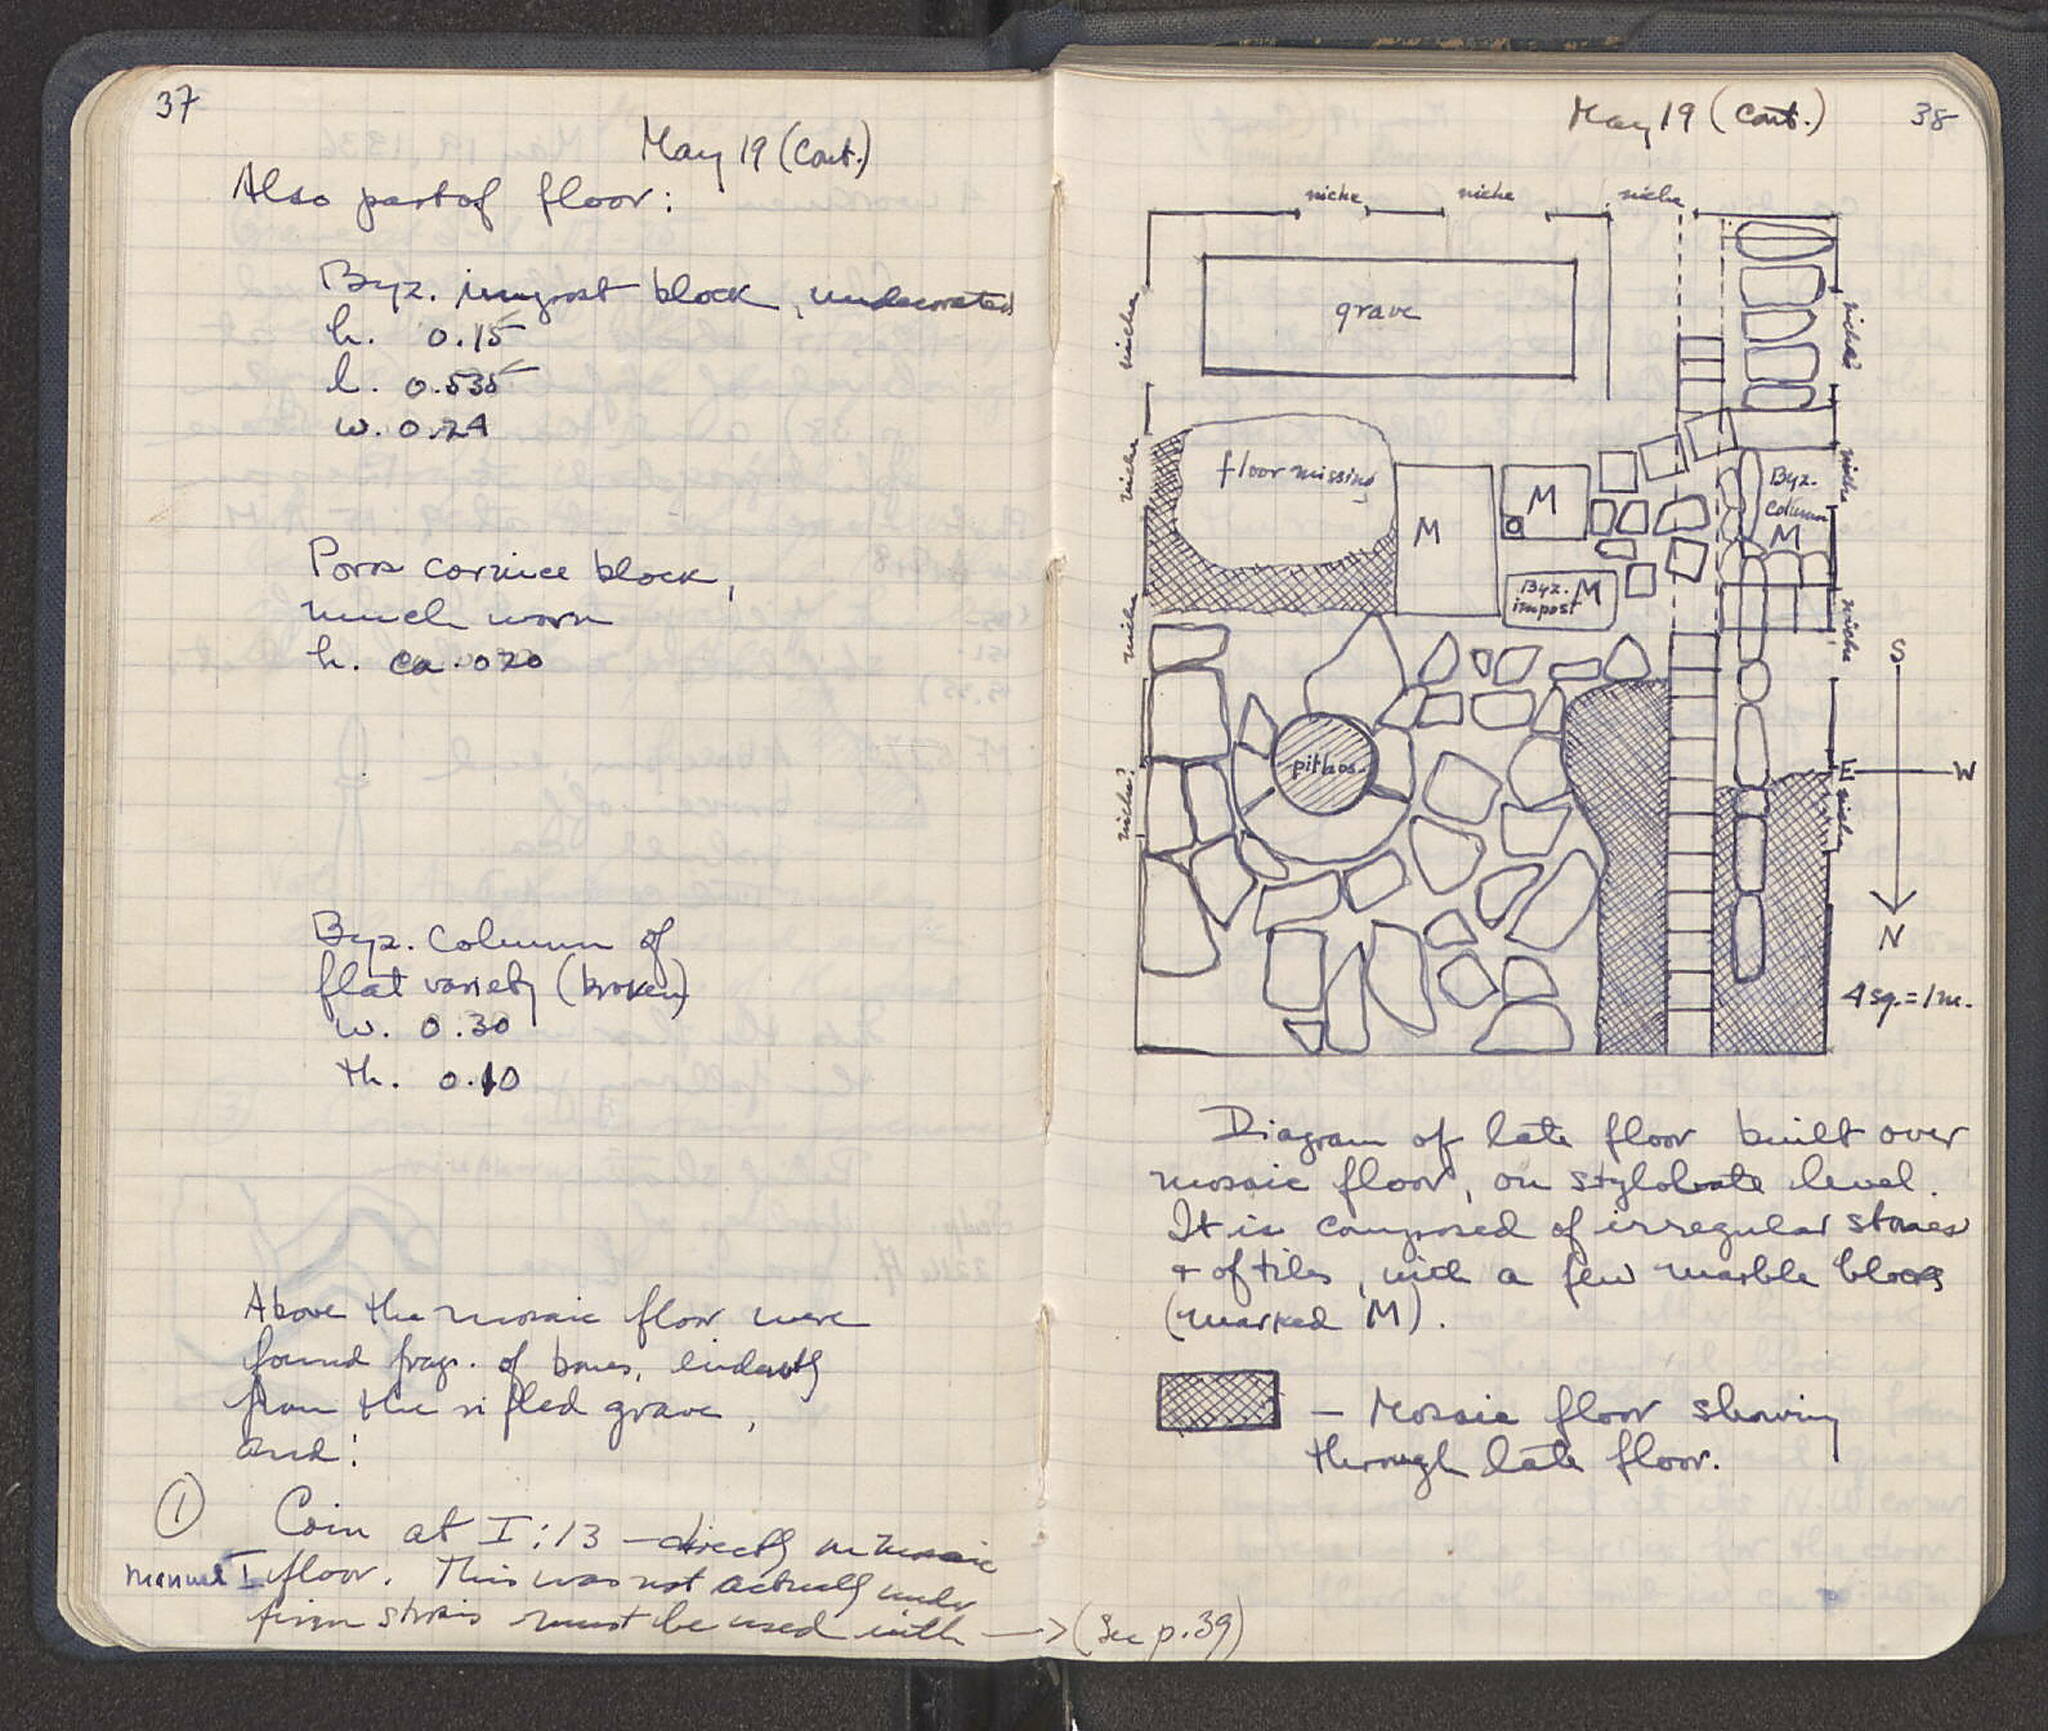 37
May 19 (Cont.)
Also part of floor:
Byz. impost block, undecorated
h. 0.15
l. 0.535
w. 0.24
Poros cornice block,
much worn
h. ca. 0.20
Byz. Column of
flat variety (broken)
w. 0.30
th. 0.10
Above the mosaic floor were
found frags. of bones, evidently
from the rifled grave,
and:
① Coin at I:13 — directly on mosaic
Manuel I floor. This was not actually under
firm stones must be used with → (See p. 39)
May 19 (Cont.) 38
niche niche niche
niche
grave
niche?
niche
floor missing
M
M
Byz.
column
M
niche
niche
Byz. M
impost
niche
S
pithos
E W
niche?
niche
N
4 sq. = 1 m.
Diagram of late floor built over
mosaic floor, on stylobate level.
It is composed of irregular stones
& of tiles, with a few marble blocks
(marked M).
— Mosaic floor showing
through late floor.